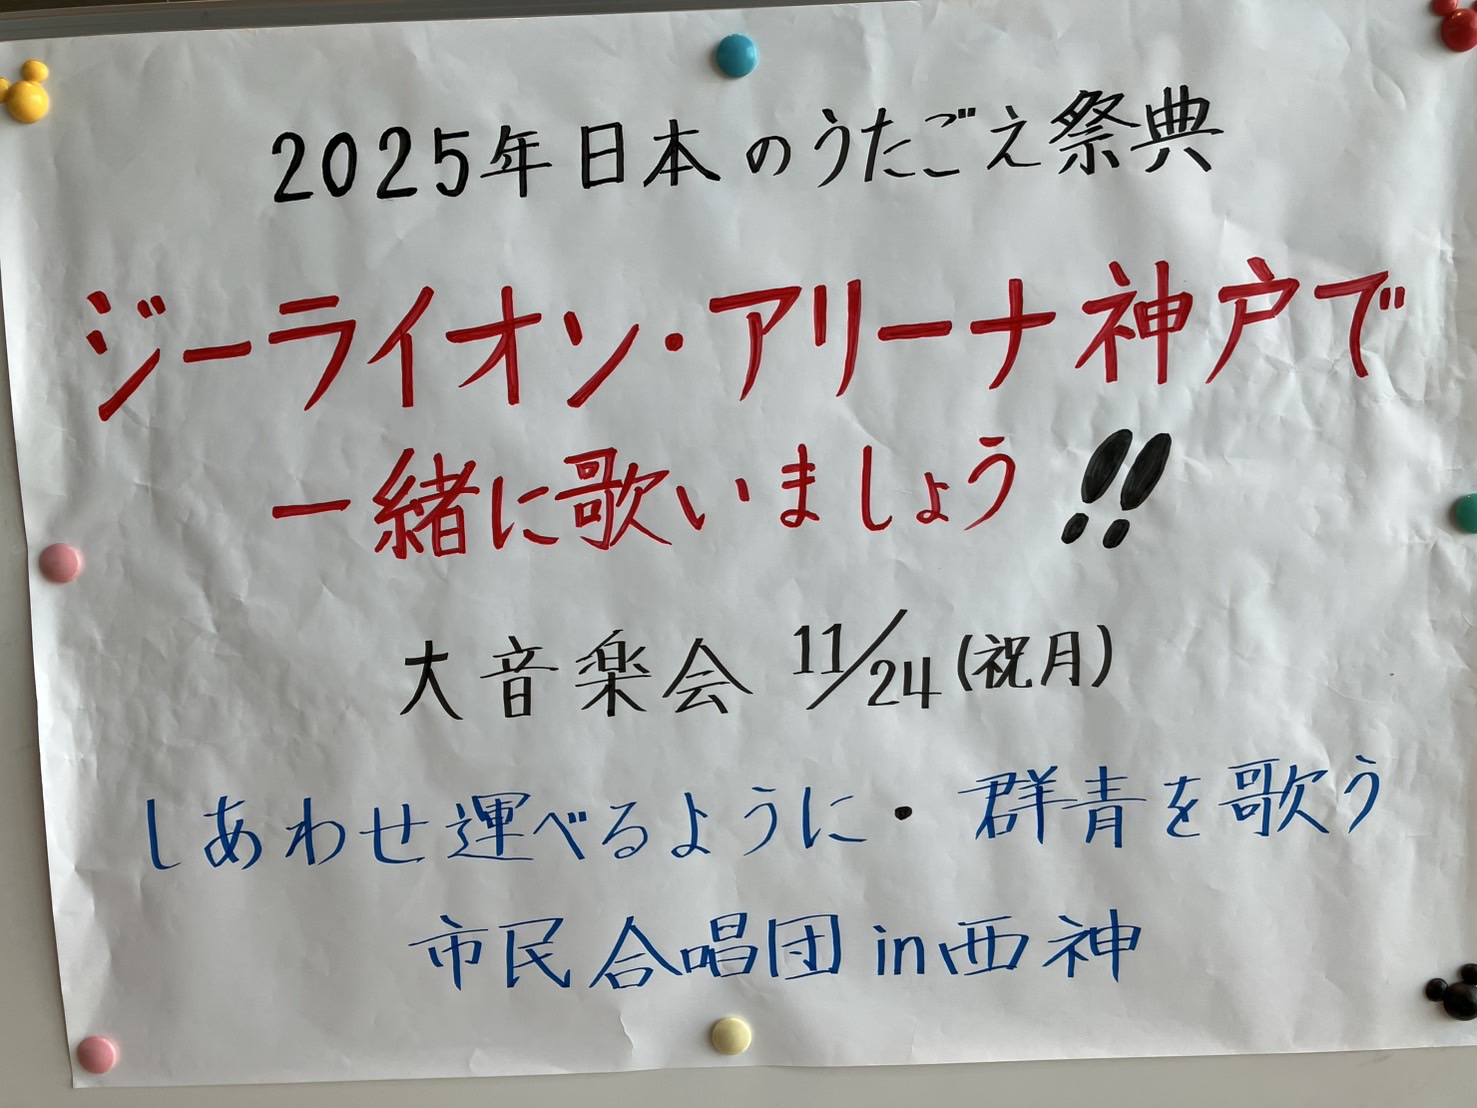 2025年日本のうたごえ祭典
ジーライオン・アリーナ神戸で
一緒に歌いましょう!!
大音楽会 11/24(祝月)
しあわせ運べるように・群青を歌う
市民合唱団in西神